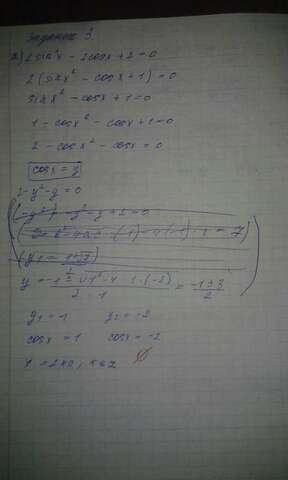 Задание 3.
а) 2sin²x - 2cosx + 2 = 0
2(sinx² - cosx + 1) = 0
sinx² - cosx + 1 = 0
1 - cosx² - cosx + 1 = 0
2 - cosx² - cosx = 0
cosx = y
2 - y² - y = 0
-y² - y + 2 = 0
y = = -1±3/2
y₁ = -1 y₂ = -2
cosx = 1 cosx = -2
∅